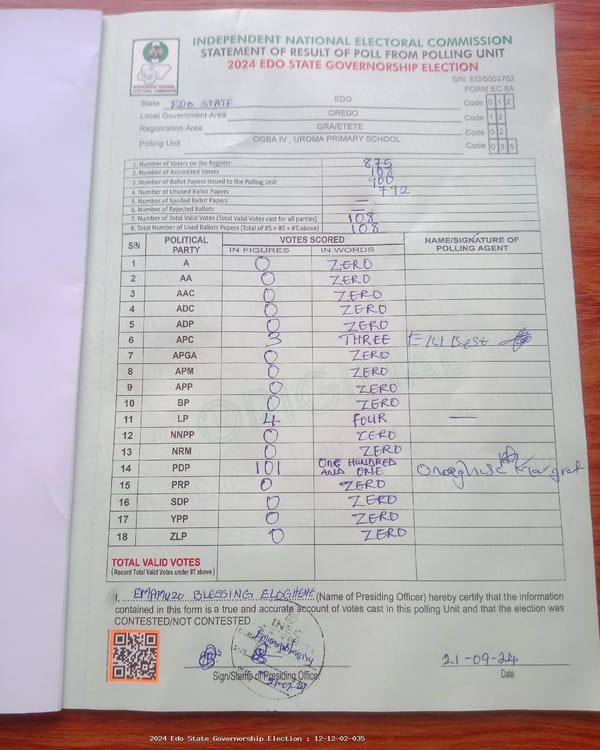 INDEPENDENT NATIONAL ELECTORAL COMMISSION
STATEMENT OF RESULT OF POLL FROM POLLING UNIT
2024 EDO STATE GOVERNORSHIP ELECTION
INEC
INDEPENDENT NATIONAL
ELECTORAL COMMISSION
S/N: EG/0002762
FORM EC 8A
State EDO STATE EDO Code 0 1 2
Local Government Area OREDO Code 1 2
Registration Area GRA/ETETE Code 0 2
Polling Unit OGBA IV , UROMA PRIMARY SCHOOL Code 0 3 5
1. Number of Voters on the Register 875
2. Number of Accredited Voters 108
3. Number of Ballot Papers Issued to the Polling Unit 900
4. Number of Unused Ballot Papers 792
5. Number of Spoiled Ballot Papers —
6. Number of Rejected Ballots —
7. Number of Total Valid Votes (Total Valid Votes cast for all parties) 108
8. Total Number of Used Ballots Papers (Total of #5 + #6 + #7 above) 108
S/N POLITICAL PARTY VOTES SCORED NAME/SIGNATURE OF POLLING AGENT
IN FIGURES IN WORDS
1 A 0 ZERO
2 AA 0 ZERO
3 AAC 0 ZERO
4 ADC 0 ZERO
5 ADP 0 ZERO
6 APC 3 THREE
7 APGA 0 ZERO
8 APM 0 ZERO
9 APP 0 ZERO
10 BP 0 ZERO
11 LP 4 FOUR —
12 NNPP 0 ZERO
13 NRM 0 ZERO
14 PDP 101 ONE HUNDRED AND ONE
15 PRP 0 ZERO
16 SDP 0 ZERO
17 YPP 0 ZERO
18 ZLP 0 ZERO
ORIGINAL
TOTAL VALID VOTES
(Record Total Valid Votes under #7 above)
I, EMAMUZO BLESSING ELOGHENE (Name of Presiding Officer) hereby certify that the information
contained in this form is a true and accurate account of votes cast in this polling Unit and that the election was
CONTESTED/NOT CONTESTED
INEC
21-09-24
Sign/Stamp of Presiding Officer
Date
2024 Edo State Governorship Election : 12-12-02-035